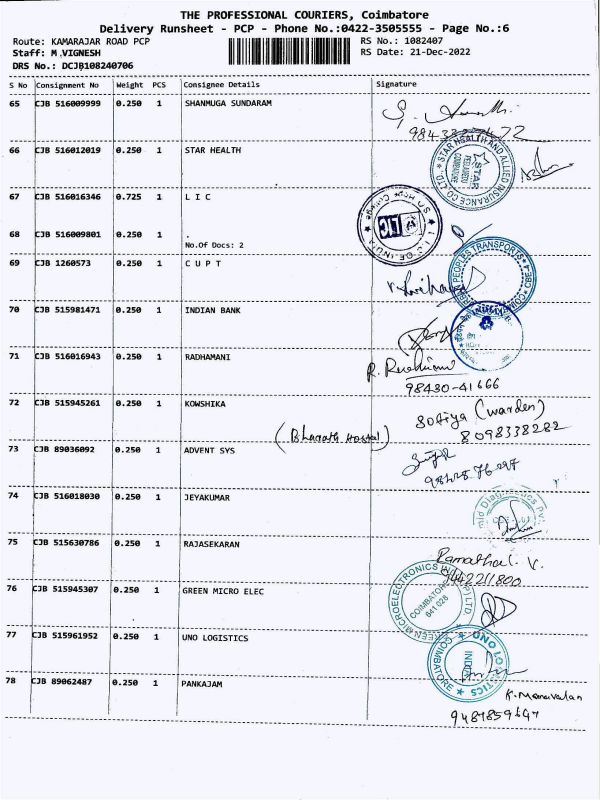 THE PROFESSIONAL COURIERS, Coimbatore
Delivery Runsheet - PCP - Phone No.:0422-3505555 - Page No.:6
Route: KAMARAJAR ROAD PCP
RS No.: 1082407
Staff: M VIGNESH
RS Date: 21-Dec-2022
DRS No.: DCJB108240706
S No Consignment No Weight PCS Consignee Details Signature
65 CJB 516009999 0.250 1 SHANMUGA SUNDARAM
66 CJB 516012019 0.250 1 STAR HEALTH
STAR HEALTH AND ALLIED INSURANCE CO. LTD.
STAR
67 CJB 516016346 0.725 1 L I C
LIC
L.I.C. OF INDIA
68 CJB 516009801 0.250 1 .
No.Of Docs: 2
69 CJB 1260573 0.250 1 C U P T
PEOPLES TRANSPORTS
70 CJB 515981471 0.250 1 INDIAN BANK
71 CJB 516016943 0.250 1 RADHAMANI
98430-41666
72 CJB 515945261 0.250 1 KOWSHIKA
Sofiya (warden)
(Bharath Hostel) 8098338282
73 CJB 89036092 0.250 1 ADVENT SYS
74 CJB 516018030 0.250 1 JEYAKUMAR
75 CJB 515630786 0.250 1 RAJASEKARAN
Ramathal. V.
9442211800
76 CJB 515945307 0.250 1 GREEN MICRO ELEC
GREEN MICROELECTRONICS
COIMBATORE
641 028
77 CJB 515961952 0.250 1 UNO LOGISTICS
UNO LOGISTICS
COIMBATORE
INDIA
78 CJB 89062487 0.250 1 PANKAJAM
K. Manavalan